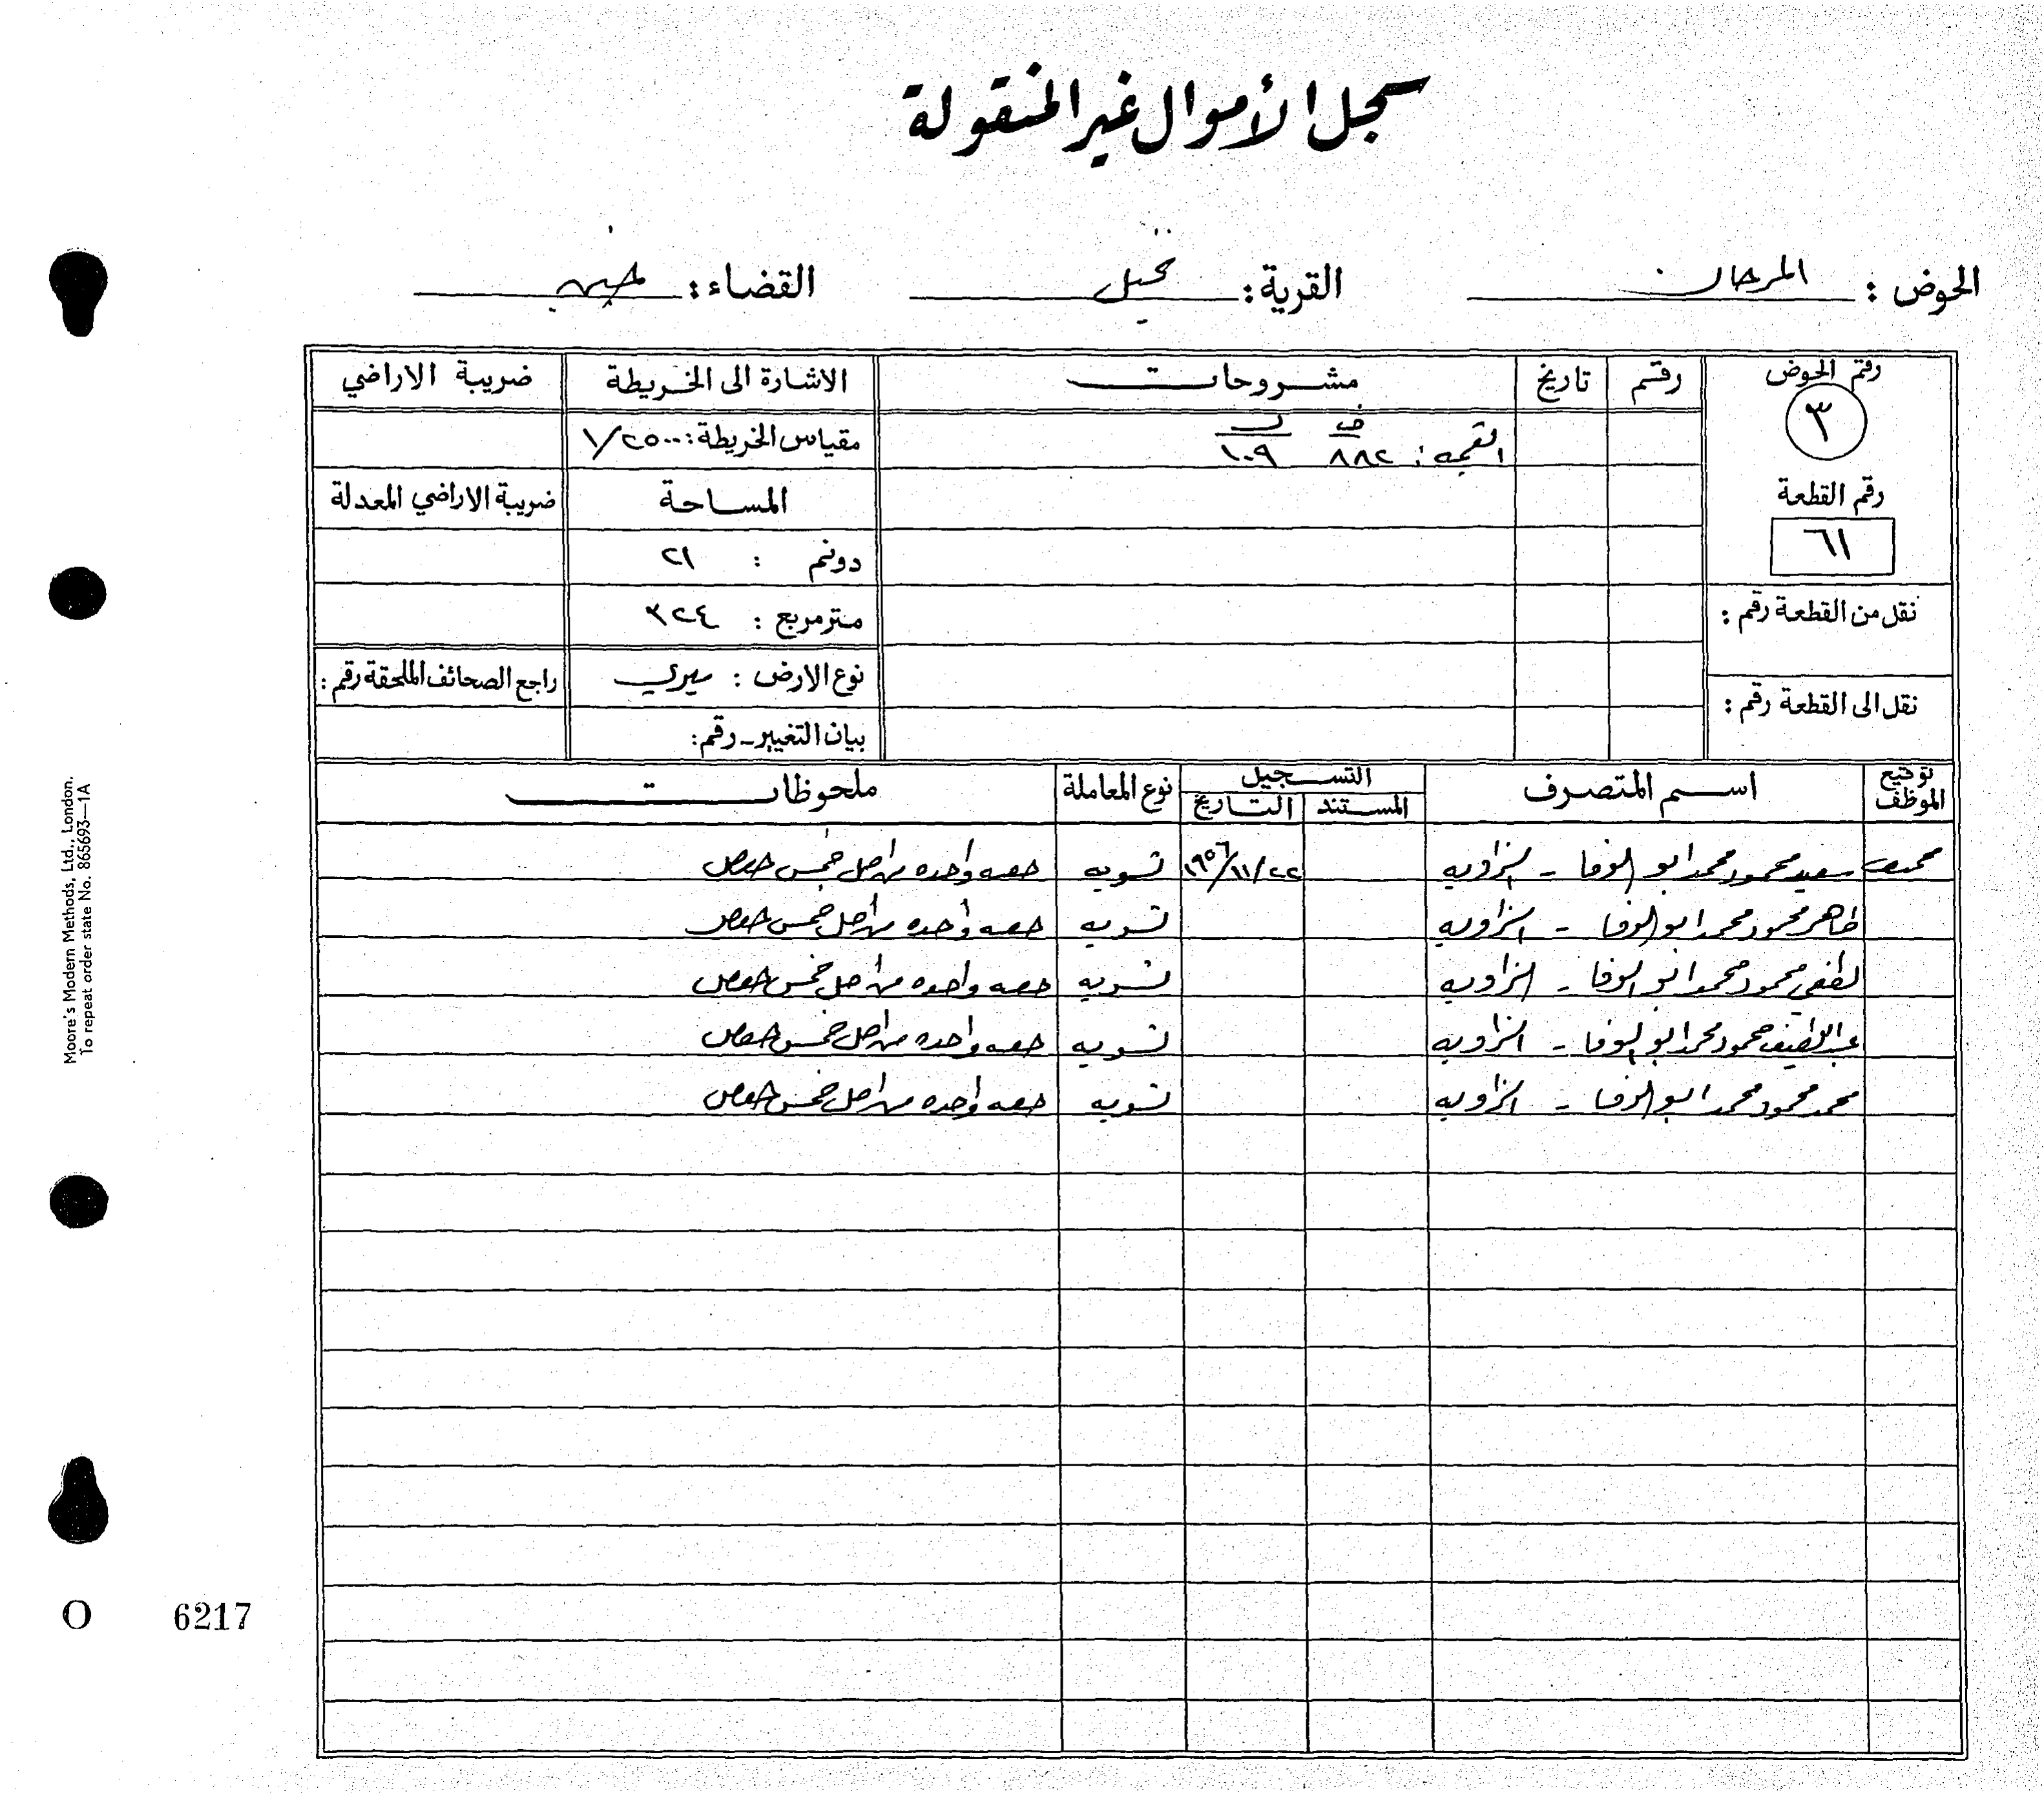 سجل الأموال غير المنقولة
الحوض : المرحان القرية : القضاء : جنين
رقم الحوض رقم تاريخ مشروحات الاشارة الى الخريطة ضريبة الاراضي
٣ القيمه : ف ٨٨٢ ل ١٠٩ مقياس الخريطة : ١/٢٥٠٠
رقم القطعة المساحة ضريبة الاراضي المعدلة
٦١ دونم : ٢١
نقل من القطعة رقم : متر مربع : ٣٢٤
نوع الارض : ميري راجع الصحائف الملحقة رقم :
نقل الى القطعة رقم : بيان التغيير - رقم :
توقيع الموظف اسم المتصرف التسجيل نوع المعاملة ملحوظات
المستند التاريخ
سعيد محمود محمد ابو الوفا - الزاويه ١٩٥٦/١١/٢٢ تسويه حصه واحده من اصل خمس حصص
ظاهر محمود محمد ابو الوفا - الزاويه تسويه حصه واحده من اصل خمس حصص
لطفي محمود محمد ابو الوفا - الزاويه تسويه حصه واحده من اصل خمس حصص
عبد اللطيف محمود محمد ابو الوفا - الزاويه تسويه حصه واحده من اصل خمس حصص
محمد محمود محمد ابو الوفا - الزاويه تسويه حصه واحده من اصل خمس حصص
Moore's Modern Methods, Ltd., London.
To repeat order state No. 865693—1A
O 6217